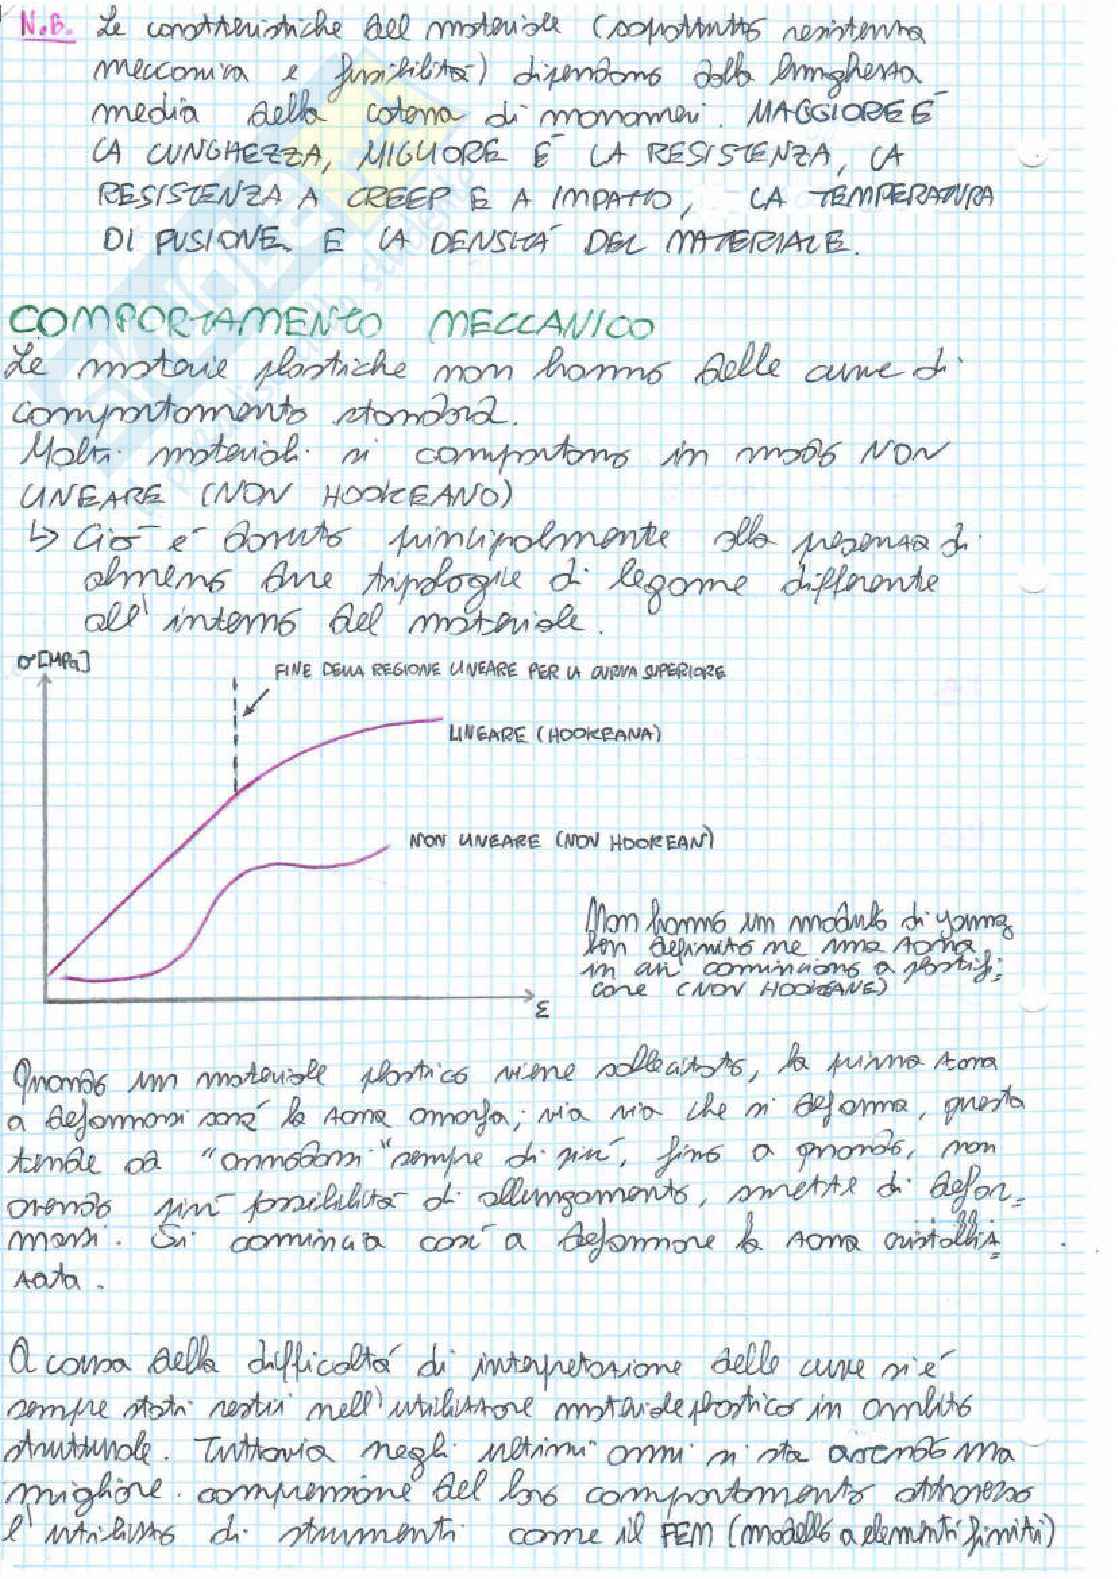 N.B. Le caratteristiche del materiale (soprattutto resistenza
meccanica e fusibilità) dipendono dalla lunghezza
media della catena di monomeri. MAGGIORE È
LA LUNGHEZZA, MIGLIORE È LA RESISTENZA, LA
RESISTENZA A CREEP E A IMPATTO, LA TEMPERATURA
DI FUSIONE E LA DENSITÁ DEL MATERIALE.
COMPORTAMENTO MECCANICO
Le materie plastiche non hanno delle curve di
comportamento standard.
Molti materiali si comportano in modo NON
LINEARE (NON HOOKEANO)
↳ Ció é dovuto principalmente alla presenza di
almeno due tripologie di legame differente
all'interno del materiale.
σ [MPa]
FINE DELLA REGIONE LINEARE PER LA CURVA SUPERIORE
LINEARE (HOOKEANA)
NON LINEARE (NON HOOKEAN)
Non hanno un modulo di young
ben definito ne una zona
in cui cominciano a plastifi-
care (NON HOOKEANE)
ε
Quando un materiale plastico viene sollecitato, la prima zona
a deformarsi sará la zona amorfa; via via che si deforma, questa
tende ad "annodarsi" sempre di piú, fino a quando, non
avendo piú possibilitá di allungamento, smette di defor-
marsi. Si comincia cosí a deformare la zona cristalliz-
zata.
A causa della difficoltá di interpretazione delle curve si é
sempre stati restii nell'utilizzare materiale plastico in ambito
strutturale. Tuttavia negli ultimi anni si sta avendo una
migliore comprensione del loro comportamento attraverso
l'utilizzo di strumenti come il FEM (modello a elementi finiti)